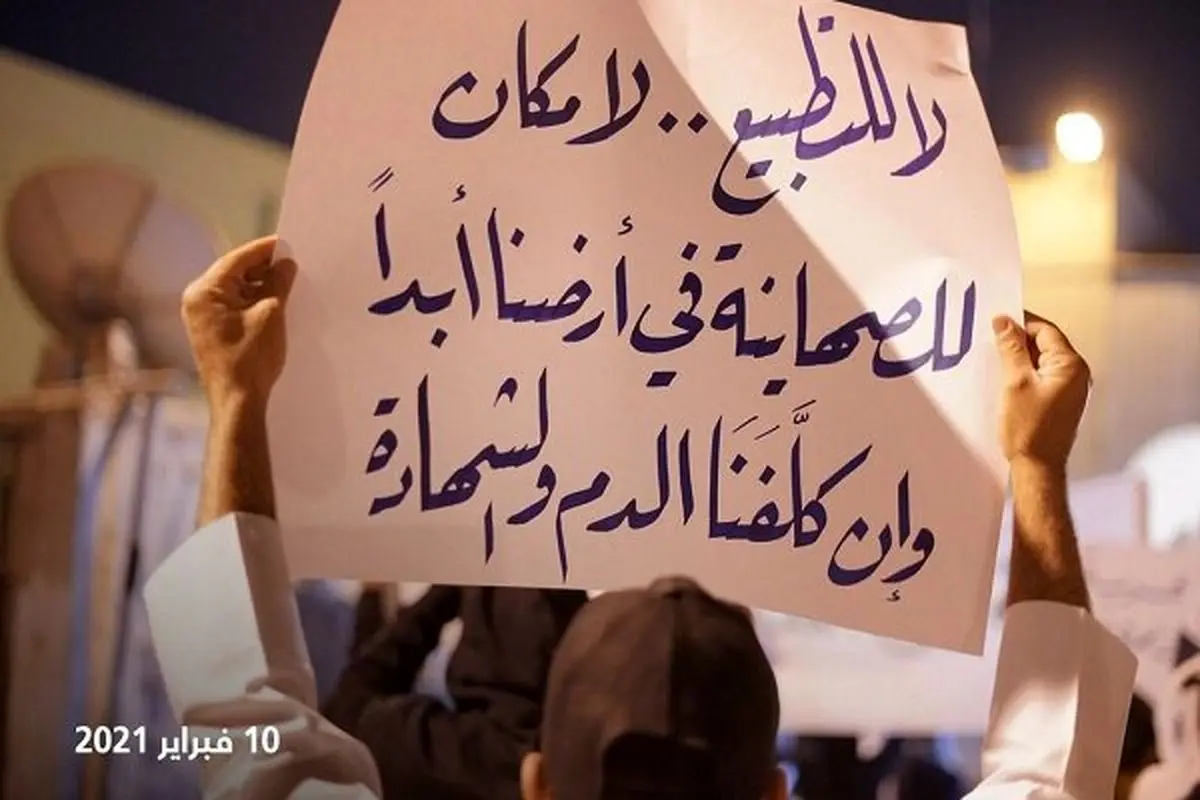 لا للتطبيع .. لا مكان
للصهاينة في أرضنا أبداً
وإن كلَّفَنَا الدم والشهادة
10 فبراير 2021